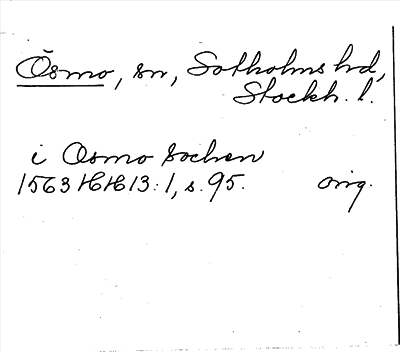 Ösmo, sn, Sotholms hd,
Stockh. l.
i Osmo sochen
1563 HH 13:1, s. 95. orig.